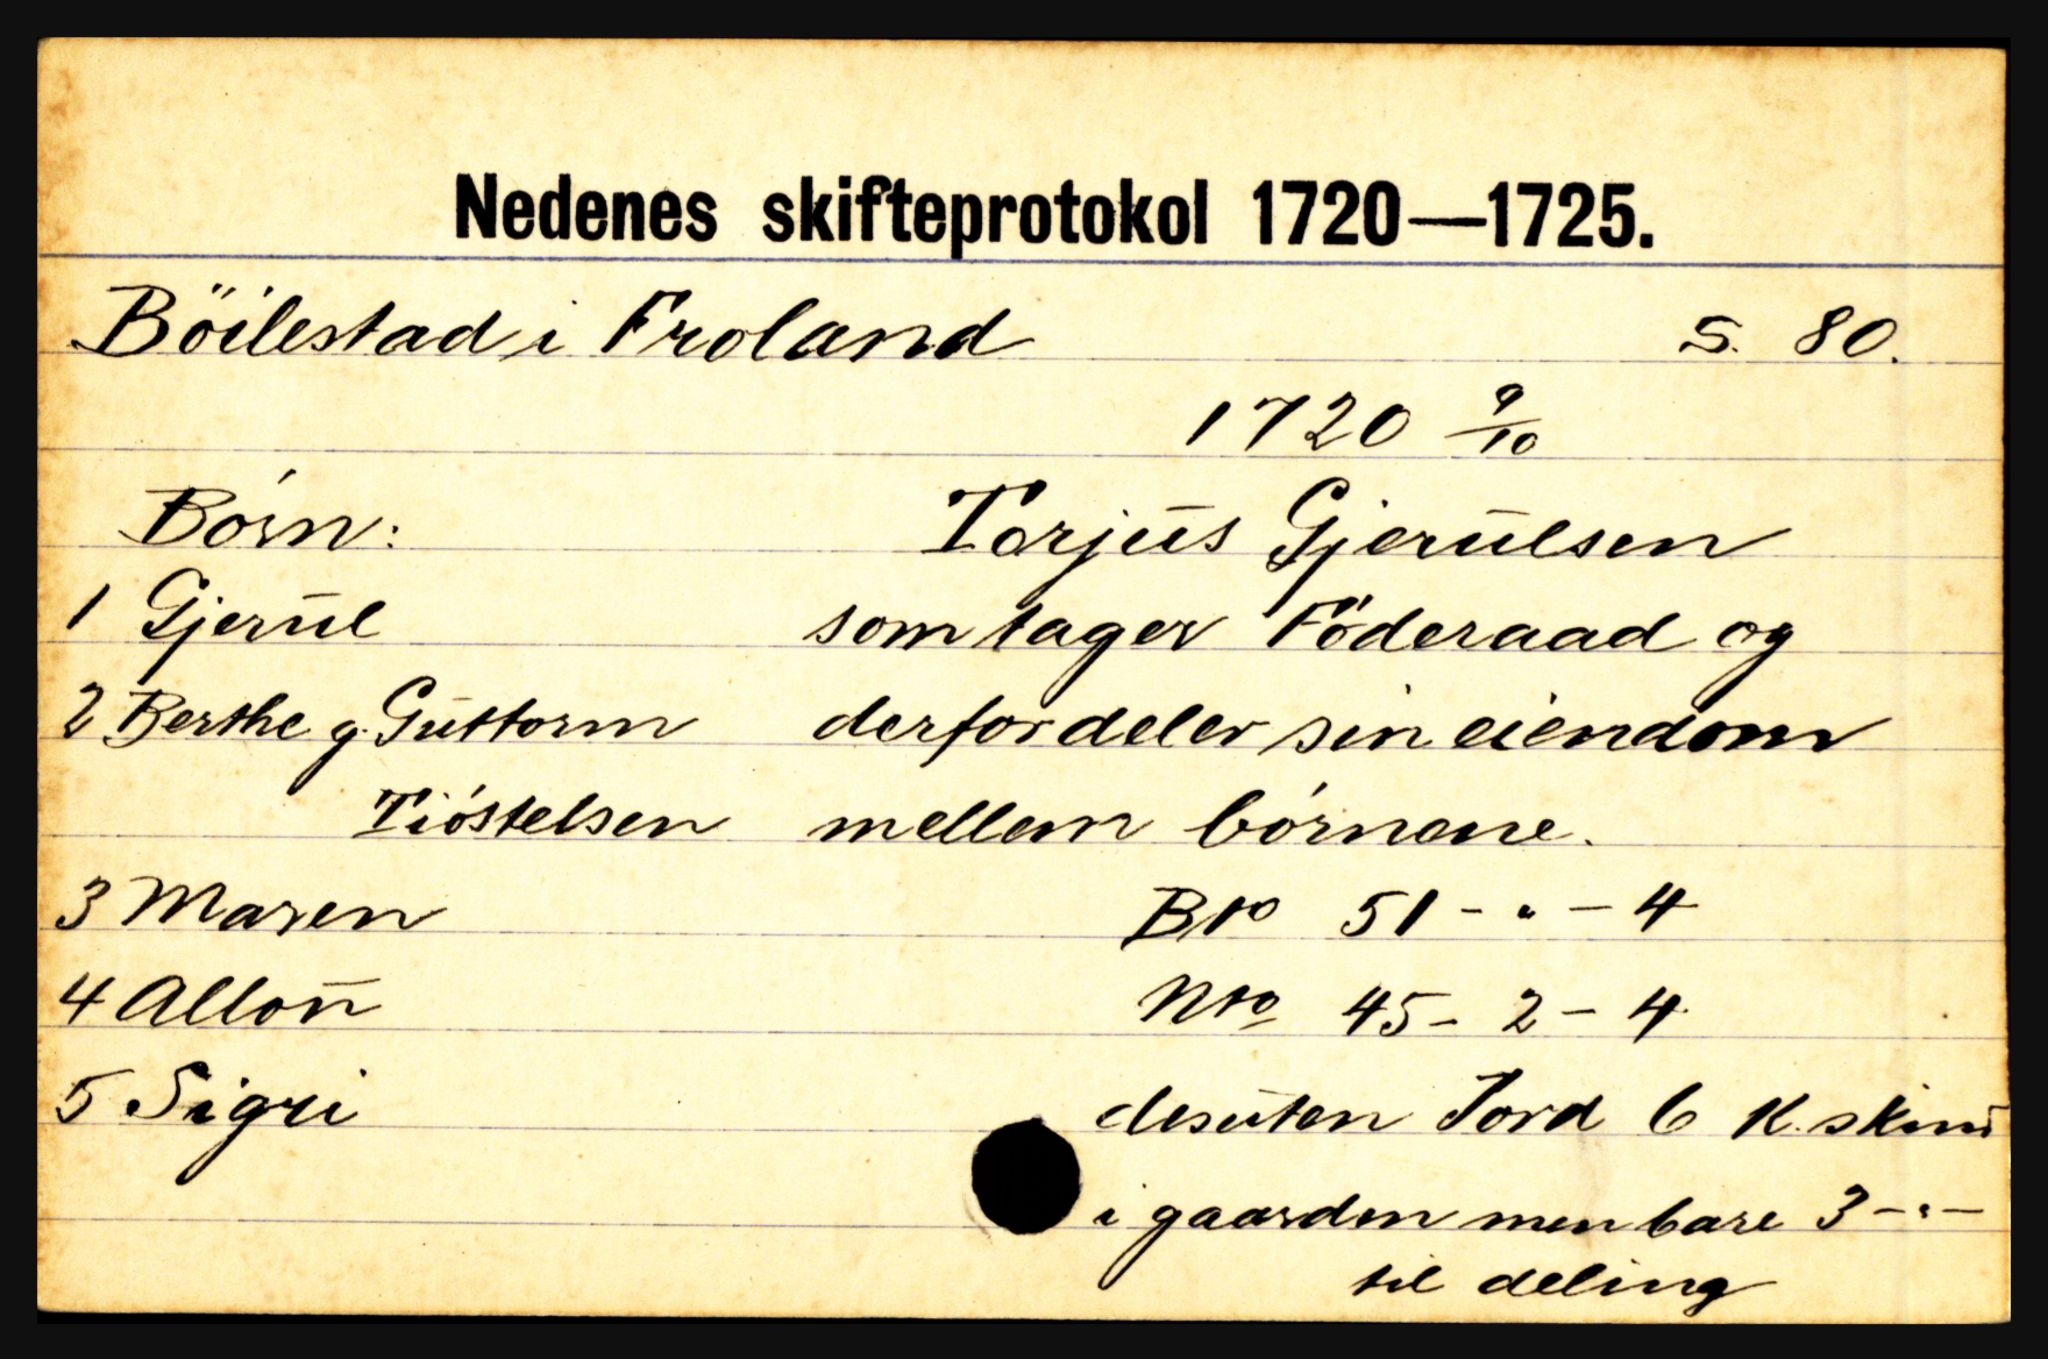 Nedenes skifteprotokol 1720—1725.
Böilestad i Froland S. 80.
1720 9/10
Börn:
1 Gjerul
2 Berthe g. Guttorm
Tióstelsen
3 Maren
4 Alloū
5 Sigri
Torjus Gjerulsen
som tager Föderaad og
derfor deler sin eiendom
mellem börnene.
Bto 51 - " - 4
Nto 45 - 2 - 4
desuten Jord 6 K. skind
i gaarden men bare 3 - " -
til deling